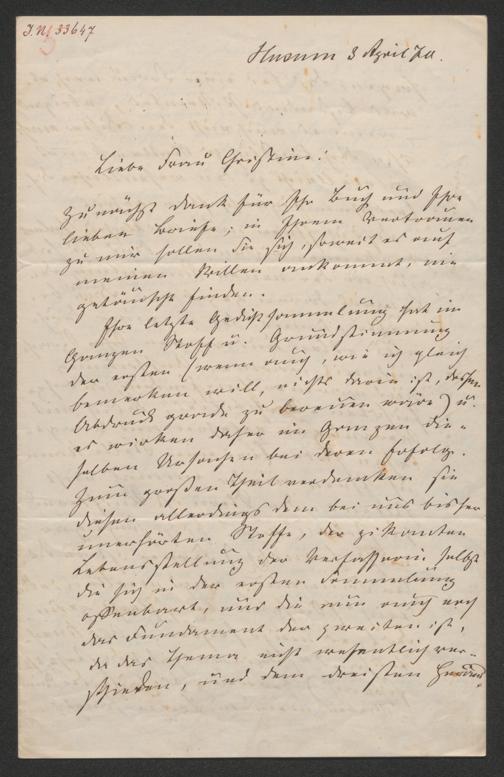 J.N. 33647
Husum 3 April 74.
Liebe Frau Christine!
Zunächst Dank für Ihr Buch und Ihre
lieben Briefe; in Ihrem Vertrauen
zu mir sollen Sie sich, soweit es auf
meinen Willen ankommt, nie
getäuscht finden.
Ihre letzte Gedichtsammlung hat im
Ganzen Stoff u. Grundstimmung
der ersten (wenn auch, wie ich gleich
bemerken will, nichts darin ist, dessen
Abdruck gerade zu bereuen wäre) u.
es wirken daher im Ganzen die-
selben Ursachen bei deren Erfolg.
Zum großen Theil verdanken sie
diesen allerdings dem bei uns bisher
unerhörten Stoffe, der pikanten
Lebensstellung der Verfasserin selbst
die sich in der ersten Sammlung
offenbart, und die nun auch noch
das Fundament der zweiten ist,
da das Thema nicht wesentlich ver-
schieden, und dem dreisten